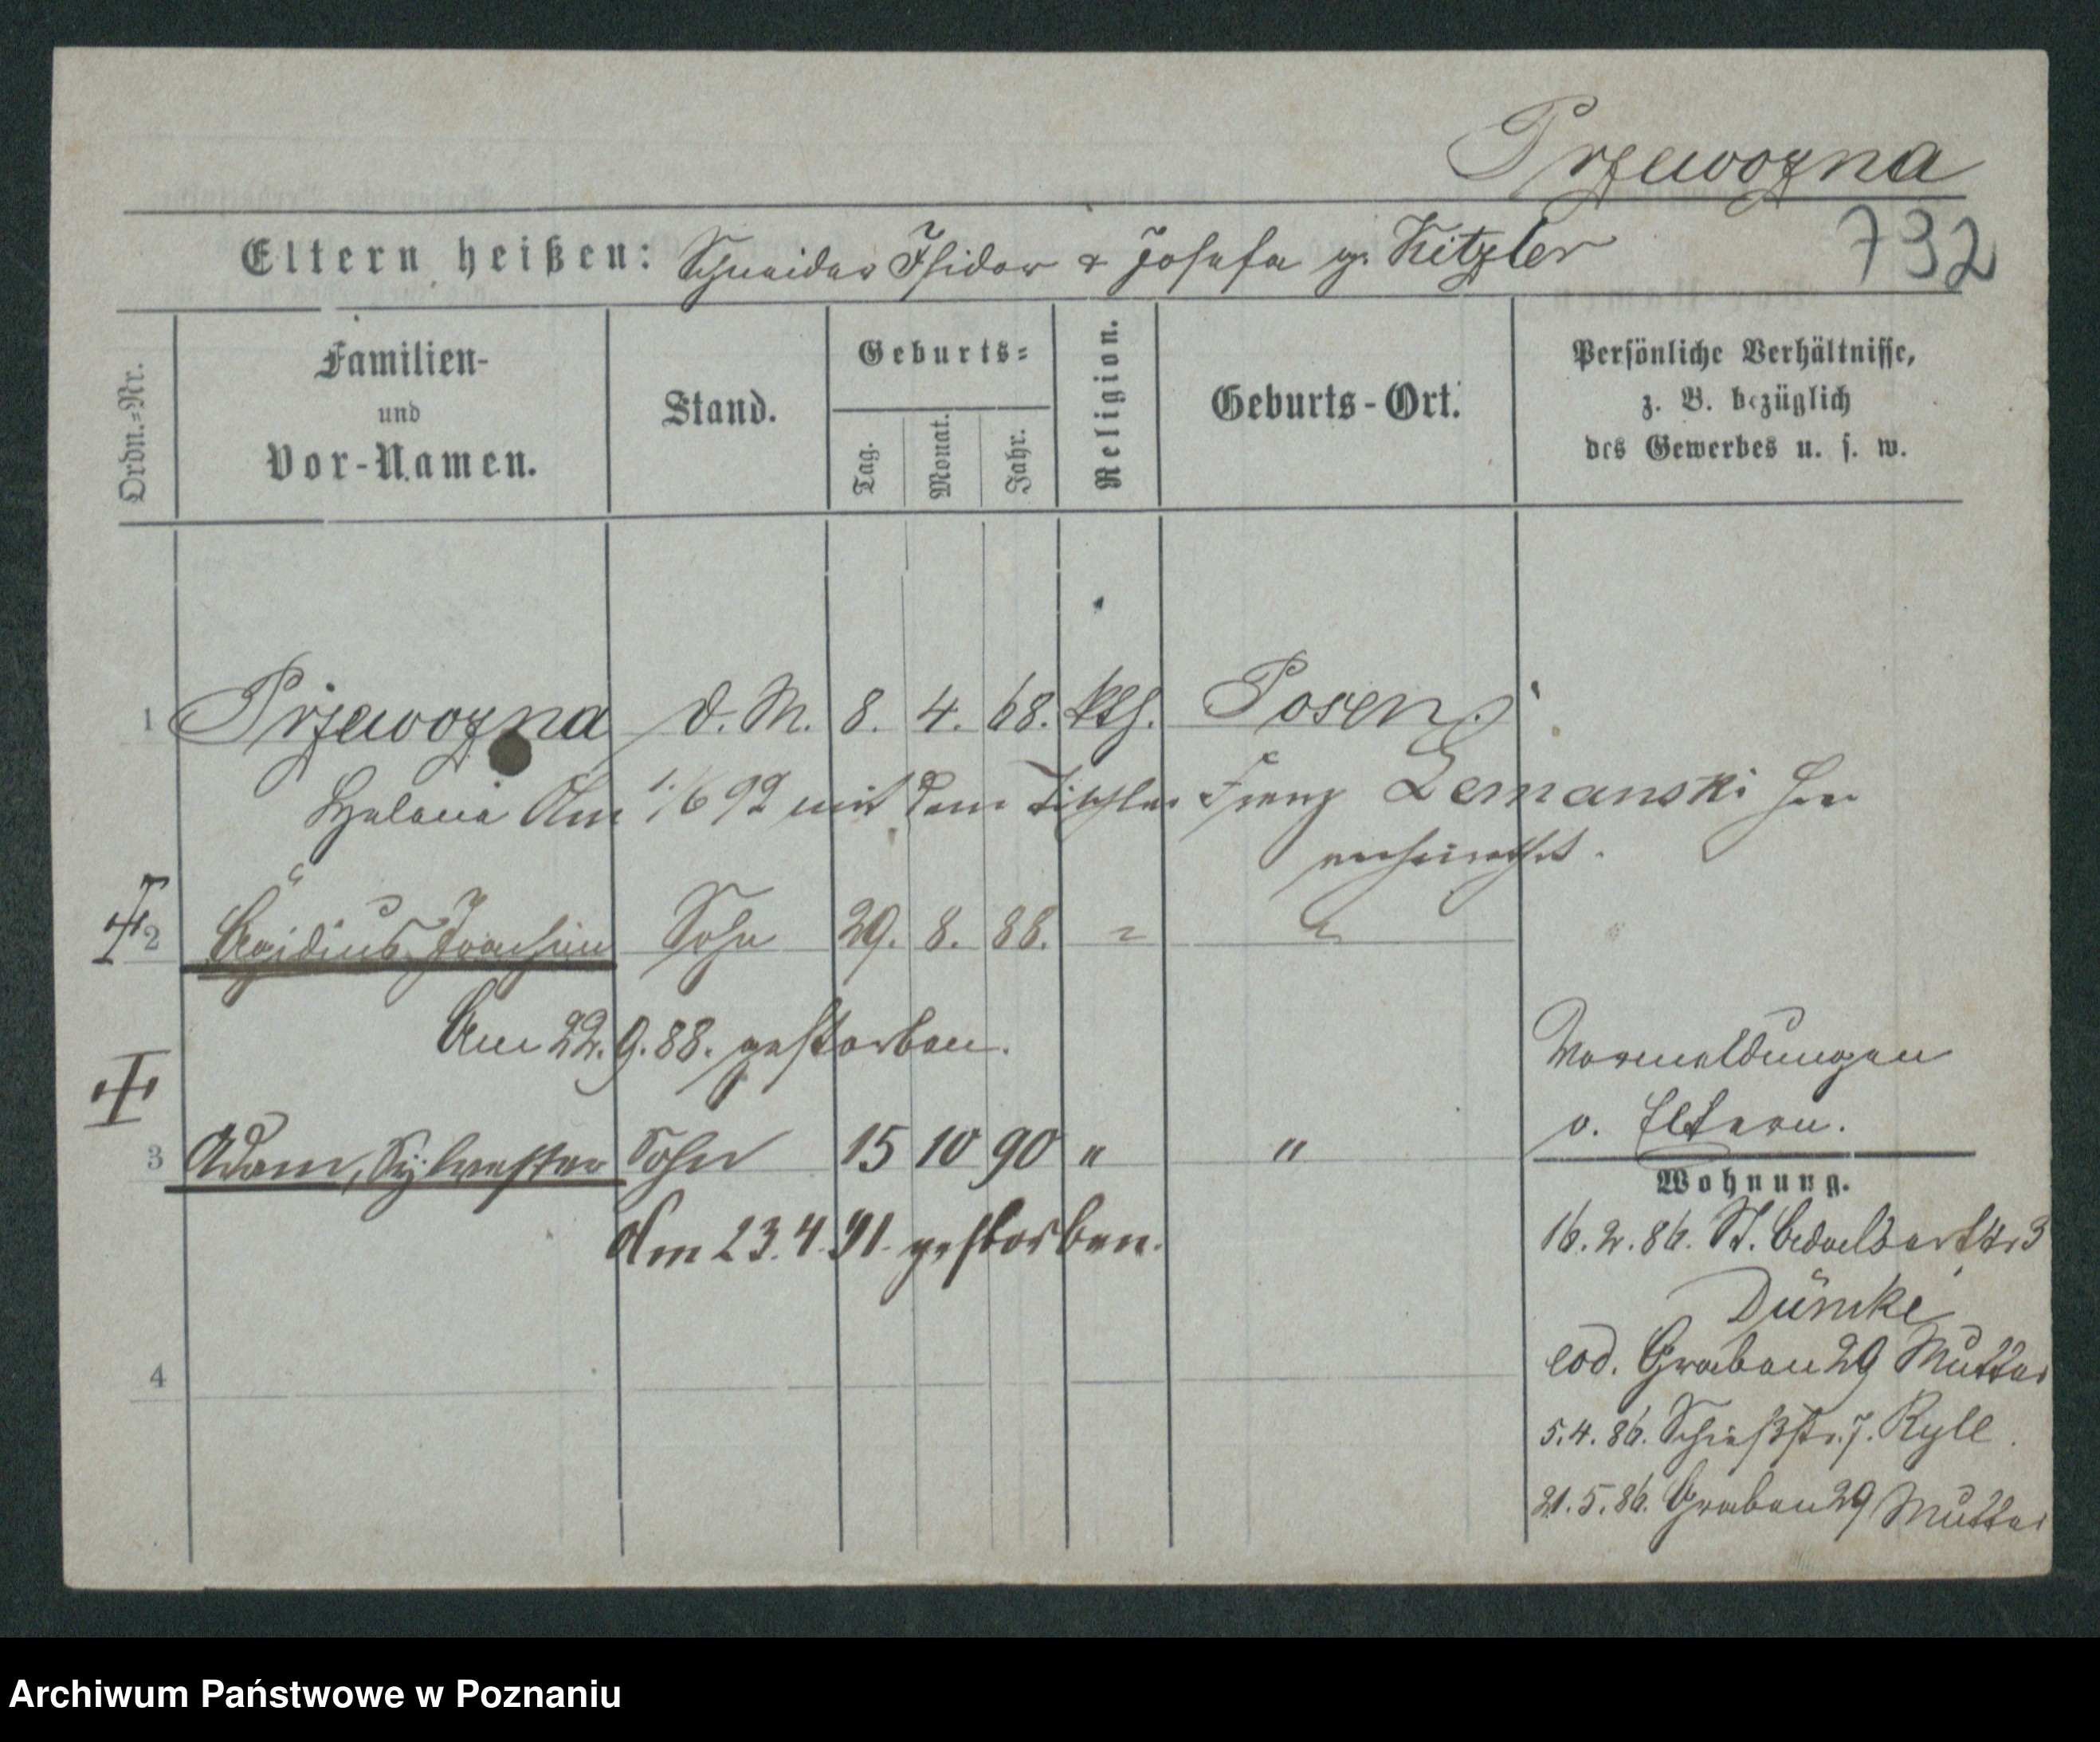 Przewozna
732
Eltern heißen: Schneider Isidor & Josefa g. Kitzler
Ordn.=Nr.
Familien-
und
Vor-Namen.
Stand.
Geburts=
Tag.
Monat.
Jahr.
Religion.
Geburts-Ort.
Persönliche Verhältnisse,
z. B. bezüglich
des Gewerbes u. s. w.
1 Przewozna d. M. 8. 4. 68. kth. Posen
Helena Am 1/6 92 mit dem Tischler Franz Lemanski hier
verheirathet.
2 Ägidius Joachim Sohn 29. 8. 88. " "
Am 22. 9. 88. gestorben.
3 Adam, Sylvester Sohn 15 10 90 " "
Am 23. 4. 91. gestorben.
4
Vormeldungen
v. Eltern.
Wohnung.
16. 2. 86. St. Adalbertstr 3
Dümke
eod. Graben 29 Mutter
5. 4. 86. Schießstr. 7. Ryll.
21. 5. 86. Graben 29 Mutter
Archiwum Państwowe w Poznaniu